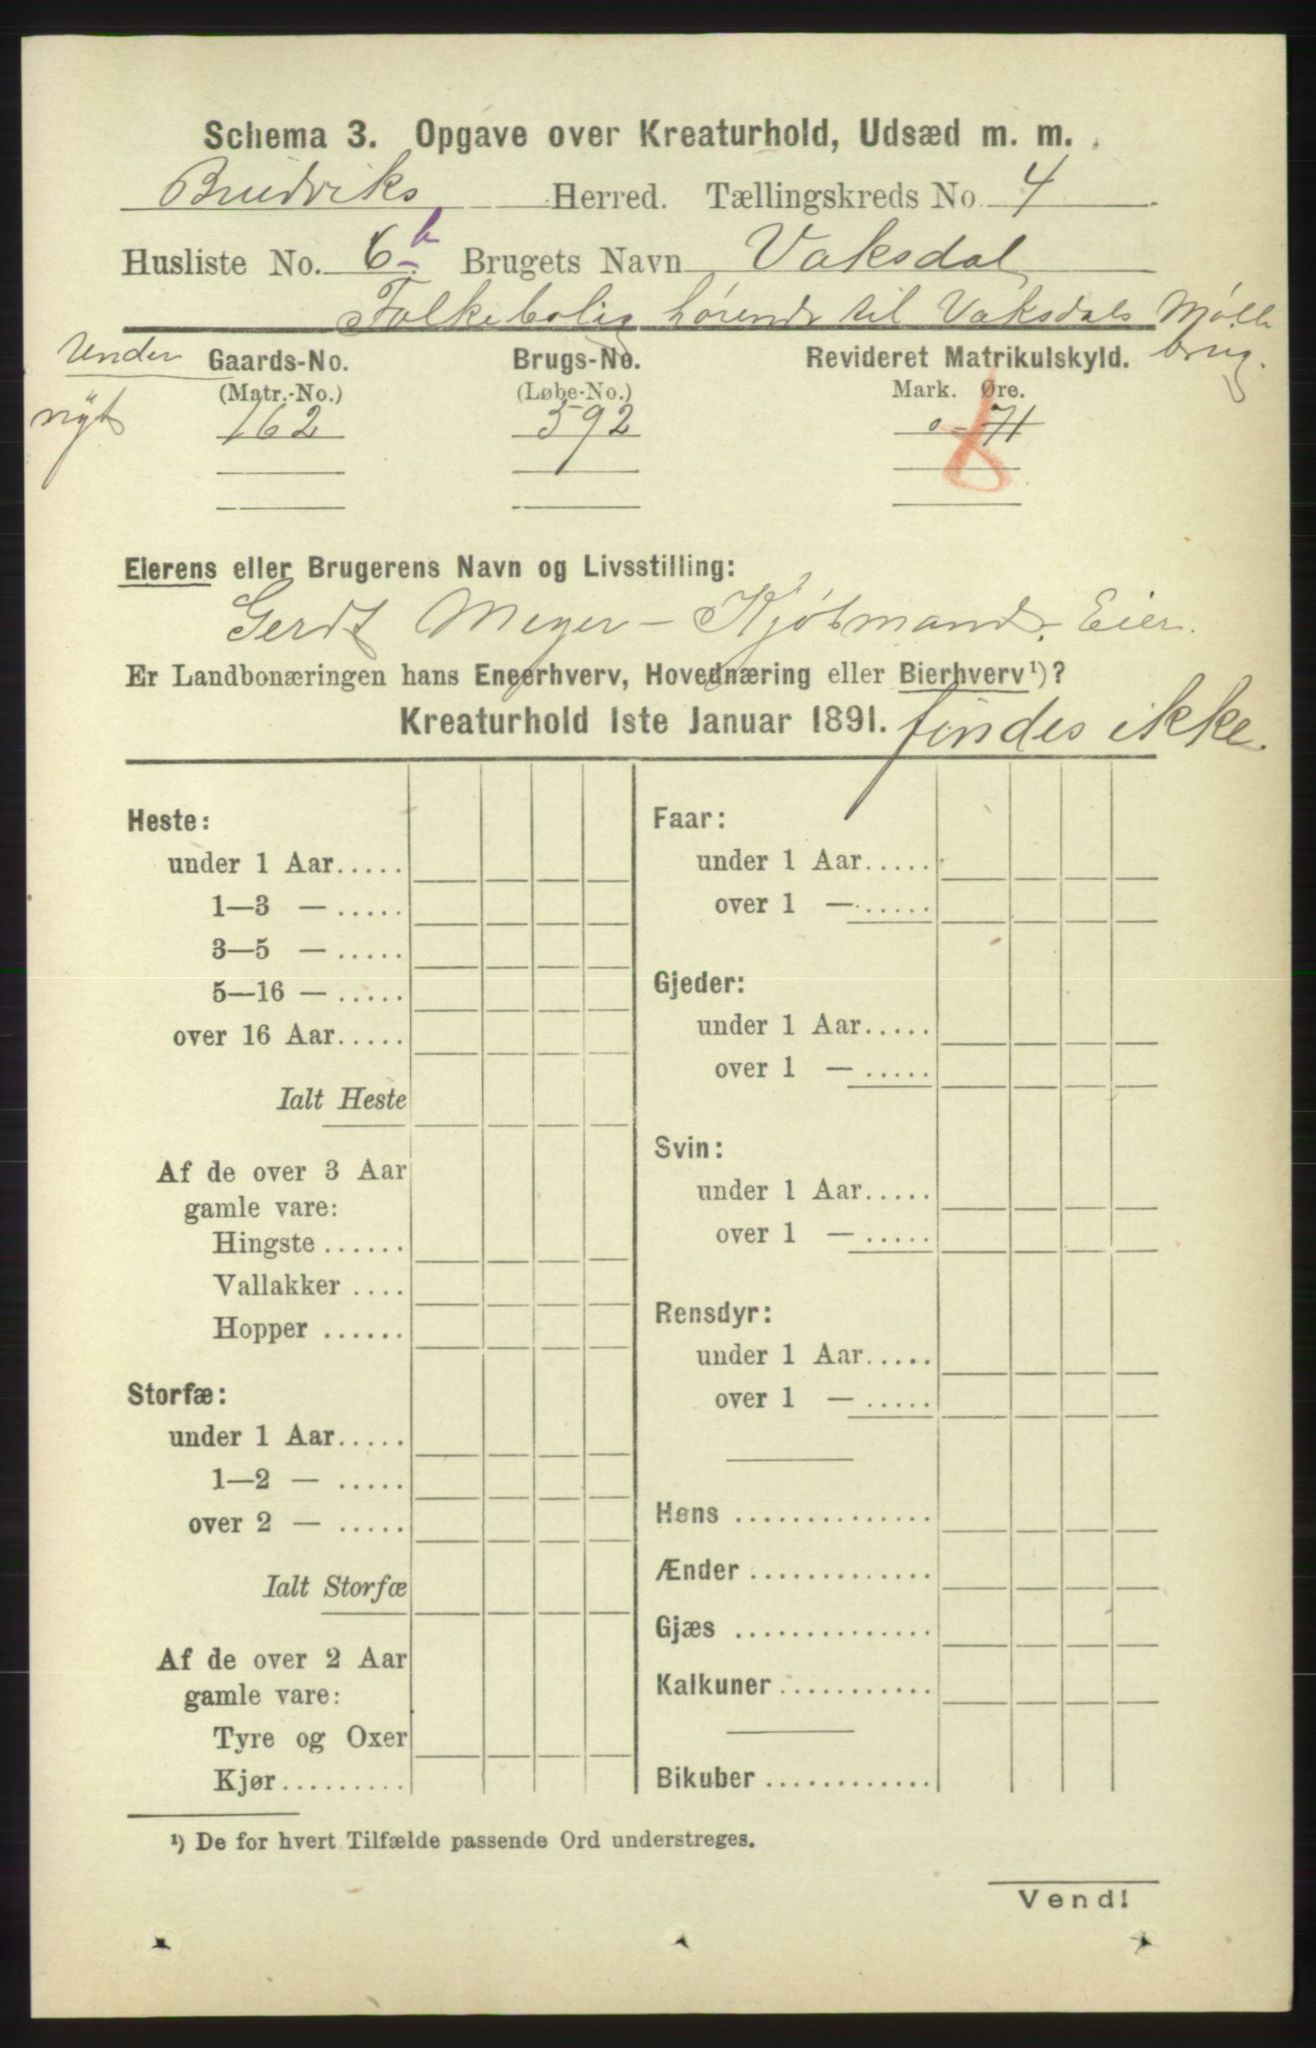 Schema 3. Opgave over Kreaturhold, Udsæd m. m.
Brudviks Herred. Tællingskreds No. 4
Husliste No. 6 b Brugets Navn Vaksdal
Folkebolig hørende til Vaksdals Mølle
brug.
Under Gaards-No. Brugs-No. Revideret Matrikulskyld.
(Matr.-No.) (Løbe-No.) Mark. Øre.
nyt 162 592 0-71
Eierens eller Brugerens Navn og Livsstilling:
Gerdt Meyer - Kjøbmand, Eier.
Er Landbonæringen hans Eneerhverv, Hovednæring eller Bierhverv¹)?
Kreaturhold 1ste Januar 1891. findes ikke.
Heste:
under 1 Aar.....
1—3 — .....
3—5 — .....
5—16 — .....
over 16 Aar.....
Ialt Heste
Af de over 3 Aar
gamle vare:
Hingste ......
Vallakker ....
Hopper ......
Storfæ:
under 1 Aar.....
1—2 — .....
over 2 — .....
Ialt Storfæ
Af de over 2 Aar
gamle vare:
Tyre og Oxer
Kjør.........
Faar:
under 1 Aar.....
over 1 — .....
Gjeder:
under 1 Aar.....
over 1 — .....
Svin:
under 1 Aar.....
over 1 — .....
Rensdyr:
under 1 Aar.....
over 1 — .....
Høns ..............
Ænder .............
Gjæs ..............
Kalkuner ...........
Bikuber ............
¹) De for hvert Tilfælde passende Ord understreges.
Vend!